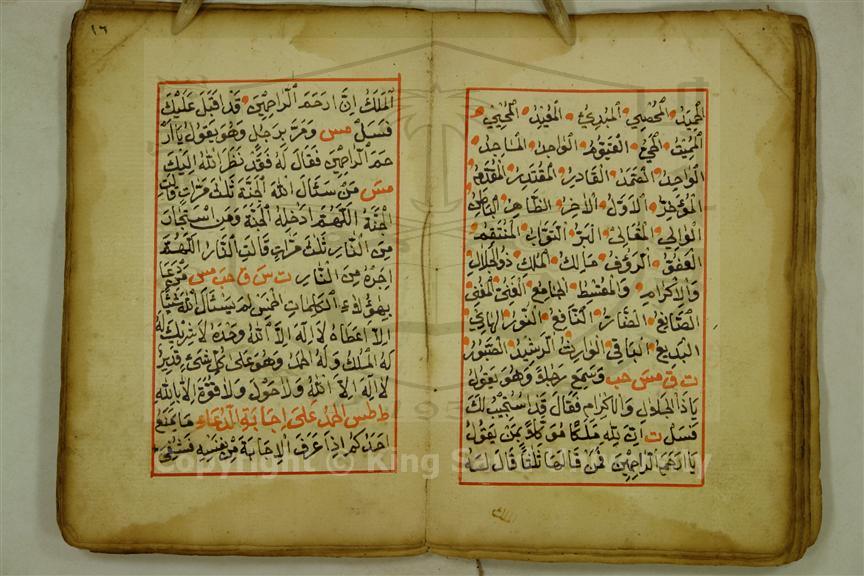 الحميد المحصي المبدئ المعيد المحيي
المميت الحي القيوم الواجد الماجد
الواحد الصمد القادر المقتدر المقدم
المؤخر الاول الاخر الظاهر الباطن
الوالي المتعالي البر التواب المنتقم
العفو الرؤف مالك الملك ذو الجلال
والاكرام والمقسط الجامع الغني المغني
المانع الضار النافع النور الهادي
البديع الباقي الوارث الرشيد الصبور
ت ق مس حب وسمع رجلا وهو يقول
ياذا الجلال والاكرام فقال قد استجيب لك
فسل ت ان لله ملكا موكلا بمن يقول
يا ارحم الراحمين فمن قالها ثلثا قال له
الملك
١٦
الملك ان ارحم الراحمين قد اقبل عليك
فسل مس ومر برجل وهو يقول يا ار
حم الراحمين فقال له فقد نظر الله اليك
مس من سئال الله الجنة ثلث مرات قالت
الجنة اللهم ادخله الجنة ومن استجار
من النار ثلث مرات قالت النار اللهم
اجره من النار ت س ق حب مس من دعا
بهؤلاء الكلمات الخمس لم يسئال الله شيئا
الا اعطاه لا اله الا الله وحده لا شريك له
له الملك وله الحمد وهو على كل شئ قدير
لا اله الا الله ولا حول ولا قوة الا بالله
ط طس الحمد على اجابة الدعاء ما يمنع
احدكم اذا عرف الاجابة من نفسه فشفي
Copyright © King Saud University